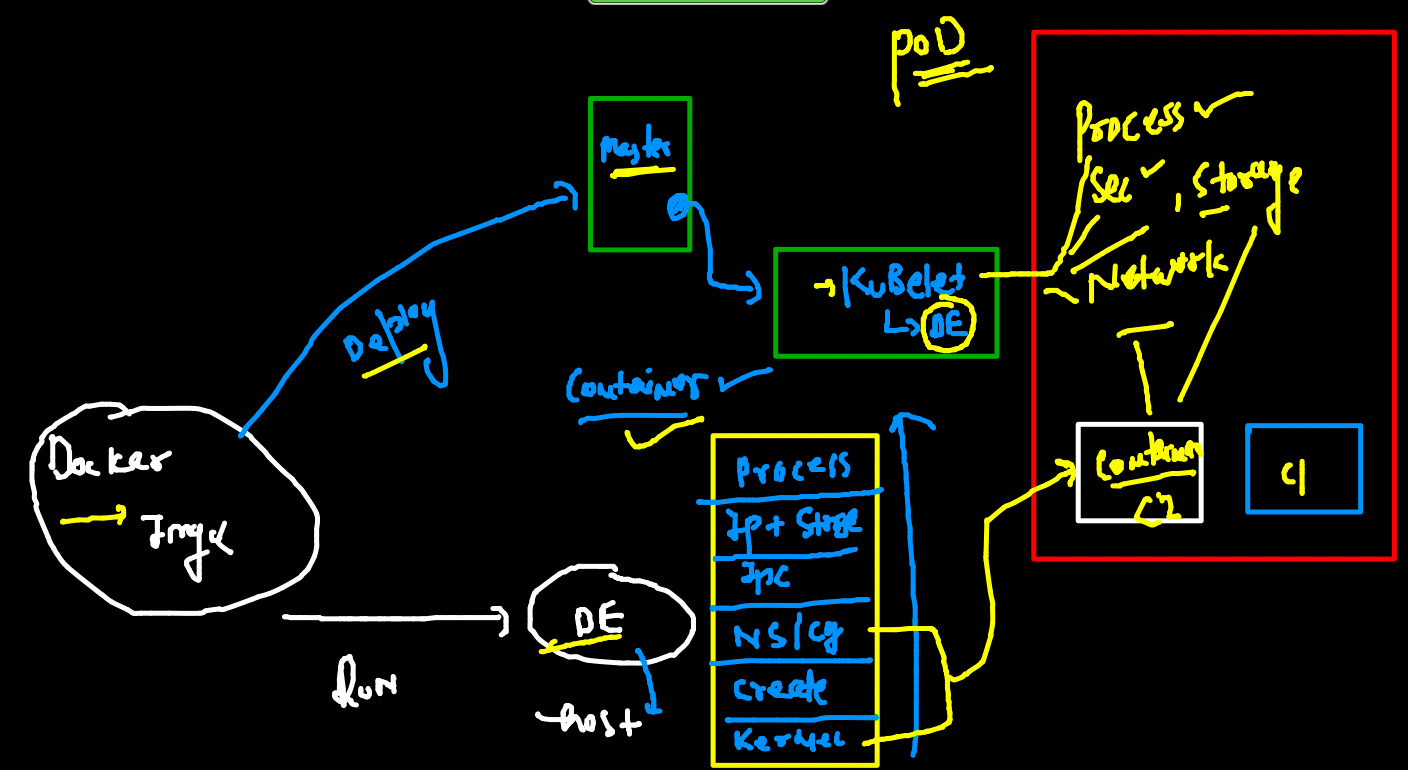 PoD
Process
Sec , Storage
Network
Master
KuBelet
DE
Deploy
Container
Docker
Image
Process
Ip + Storge
Ipc
NS/cg
create
Kernel
Container
C2
C1
DE
Run
host